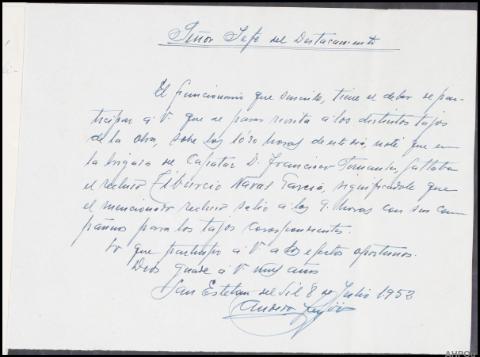 Señor Jefe del Destacamento
El funcionario que suscribe, tiene el deber de par-
ticipar a V. que al pasar revista a los distintos tajos
de la obra, sobre las 16'30 horas de este día, noté que en
la brigada del Capataz D. Francisco Fernandez, faltaba
el recluso Tiburcio Naval Garcia, significandole que
el mencionado recluso salió a las 9 horas con sus com-
pañeros para los tajos correspondientes.
Lo que participo a V. a los efectos oportunos.
Dios guarde a V. muchos años
San Esteban del Sil 8 de Julio 1953